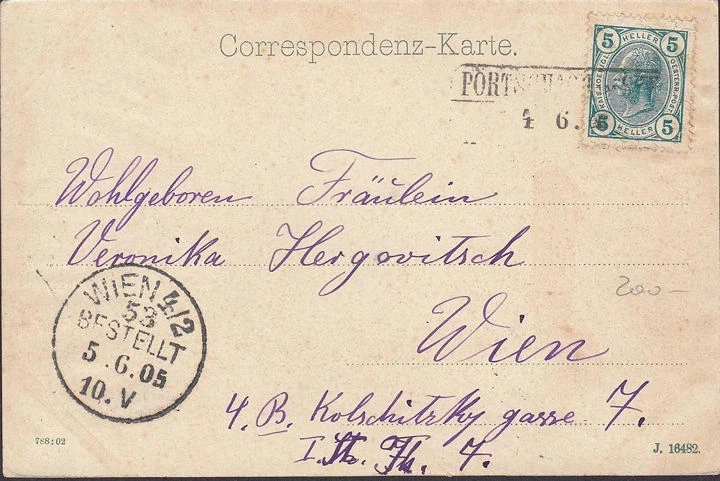 Correspondenz-Karte.
5 HELLER 5
5 HELLER 5
4 6.
Wohlgeboren Fräulein
Veronika Hergovitsch
200-
Wien
WIEN 4/2
53
BESTELLT
5.6.05
10.V
4. B. Kolschitzky gasse 7.
I. St. Th. 7.
788:02
J. 16482.